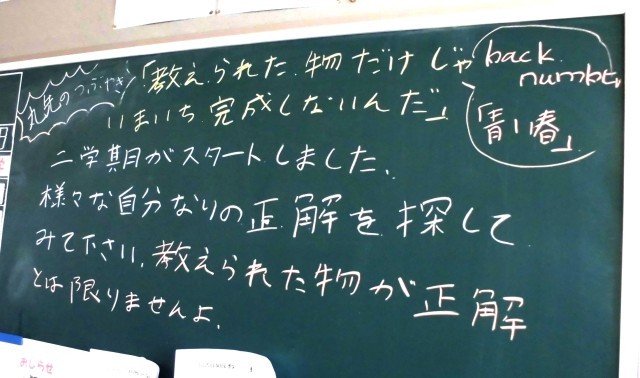 丸先のつぶやき
「教えられた物だけじゃ
いまいち完成しないんだ」
back
number
「青い春」
二学期がスタートしました。
様々な自分なりの正解を探して
みて下さい。教えられた物が正解
とは限りませんよ。
おしらせ